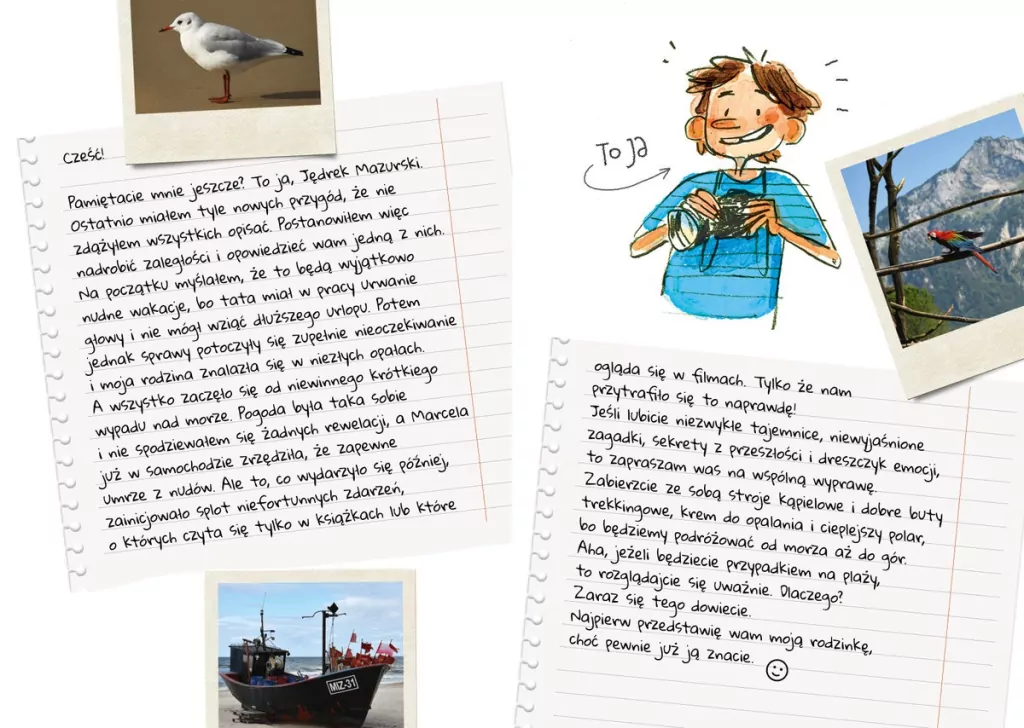 Cześć!
Pamiętacie mnie jeszcze? To ja, Jędrek Mazurski.
Ostatnio miałem tyle nowych przygód, że nie
zdążyłem wszystkich opisać. Postanowiłem więc
nadrobić zaległości i opowiedzieć wam jedną z nich.
Na początku myślałem, że to będą wyjątkowo
nudne wakacje, bo tata miał w pracy urwanie
głowy i nie mógł wziąć dłuższego urlopu. Potem
jednak sprawy potoczyły się zupełnie nieoczekiwanie
i moja rodzina znalazła się w niezłych opałach.
A wszystko zaczęło się od niewinnego krótkiego
wypadu nad morze. Pogoda była taka sobie
i nie spodziewałem się żadnych rewelacji, a Marcela
już w samochodzie zrzędziła, że zapewne
umrze z nudów. Ale to, co wydarzyło się później,
zainicjowało splot niefortunnych zdarzeń,
o których czyta się tylko w książkach lub które
MIZ-31
To ja
ogląda się w filmach. Tylko że nam
przytrafiło się to naprawdę!
Jeśli lubicie niezwykłe tajemnice, niewyjaśnione
zagadki, sekrety z przeszłości i dreszczyk emocji,
to zapraszam was na wspólną wyprawę.
Zabierzcie ze sobą stroje kąpielowe i dobre buty
trekkingowe, krem do opalania i cieplejszy polar,
bo będziemy podróżować od morza aż do gór.
Aha, jeżeli będziecie przypadkiem na plaży,
to rozglądajcie się uważnie. Dlaczego?
Zaraz się tego dowiecie.
Najpierw przedstawię wam moją rodzinkę,
choć pewnie już ją znacie.